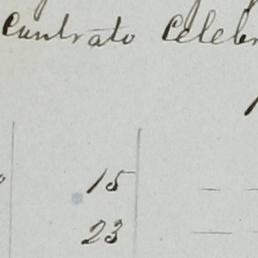 Contrato Celebr
15 — —
23 ——